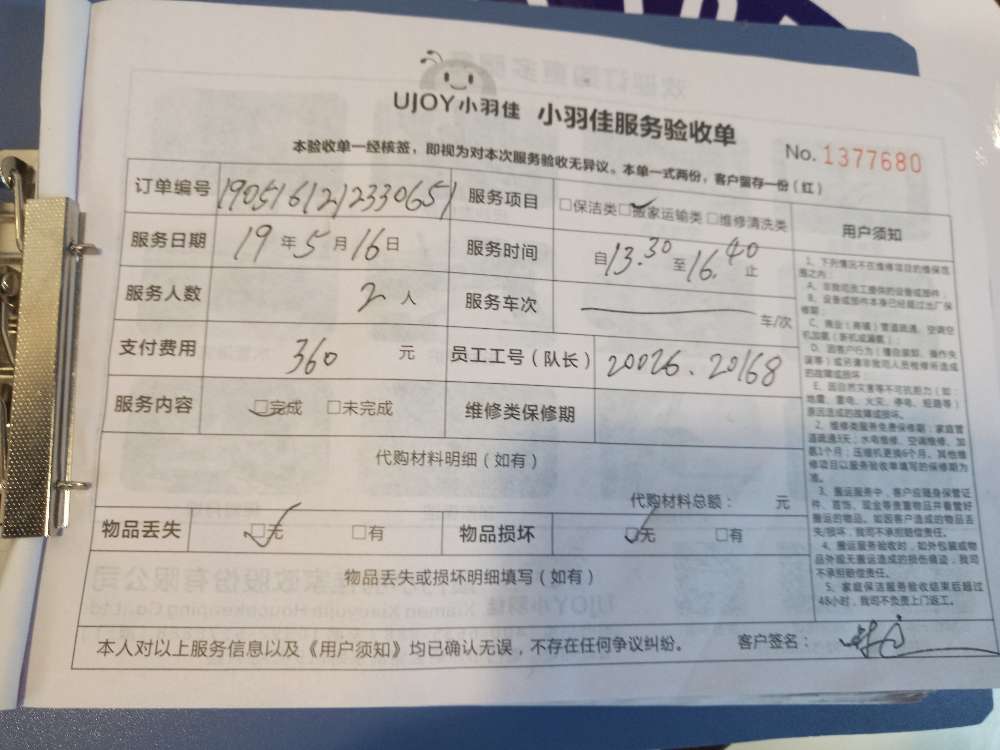 UJOY小羽佳 小羽佳服务验收单
No. 1377680
本验收单一经核签，即视为对本次服务验收无异议。本单一式两份，客户留存一份（红）
订单编号 1905161212330651 服务项目 □保洁类□搬家运输类 □维修清洗类
服务日期 19年5月16日 服务时间 自13.30至16.40止
服务人数 2人 服务车次 车/次
支付费用 360 元 员工工号（队长） 20026.20168
服务内容 □完成 □未完成 维修类保修期
代购材料明细（如有）
代购材料总额： 元
物品丢失 □无 □有 物品损坏 □无 □有
物品丢失或损坏明细填写（如有）
本人对以上服务信息以及《用户须知》均已确认无误，不存在任何争议纠纷。 客户签名：
用户须知
1、下列情况不在维修项目的维保范
围之内：
A、非我司员工提供的设备或部件；
B、设备或部件本身已经超过出厂保
修期；
C、商业（商铺）管道疏通、空调空
机加氨（拆机或漏氨）；
D、因客户行为（擅自装卸、操作失
误等）或另请非我司人员检修所造成
的故障或损坏；
E、因自然灾害等不可抗拒力（如：
地震、雷电、火灾、停电、短路等）
原因造成的故障或损坏。
2、维修类服务免费保修期：家庭管
道疏通3天；水电维修、空调维修、加
氨1个月；压缩机更换6个月。其他维
修项目以服务验收单填写的保修期为
准。
3、搬运服务中，客户应随身保管证
件、首饰、现金等贵重物品并看管好
搬运的物品。如因客户造成的物品丢
失/损坏，我司不承担赔偿责任。
4、搬运服务验收时，如外包装或物
品外观无搬运造成的损伤痕迹，我司
不承担赔偿责任。
5、家庭保洁服务验收结束后超过
48小时，我司不负责上门返工。